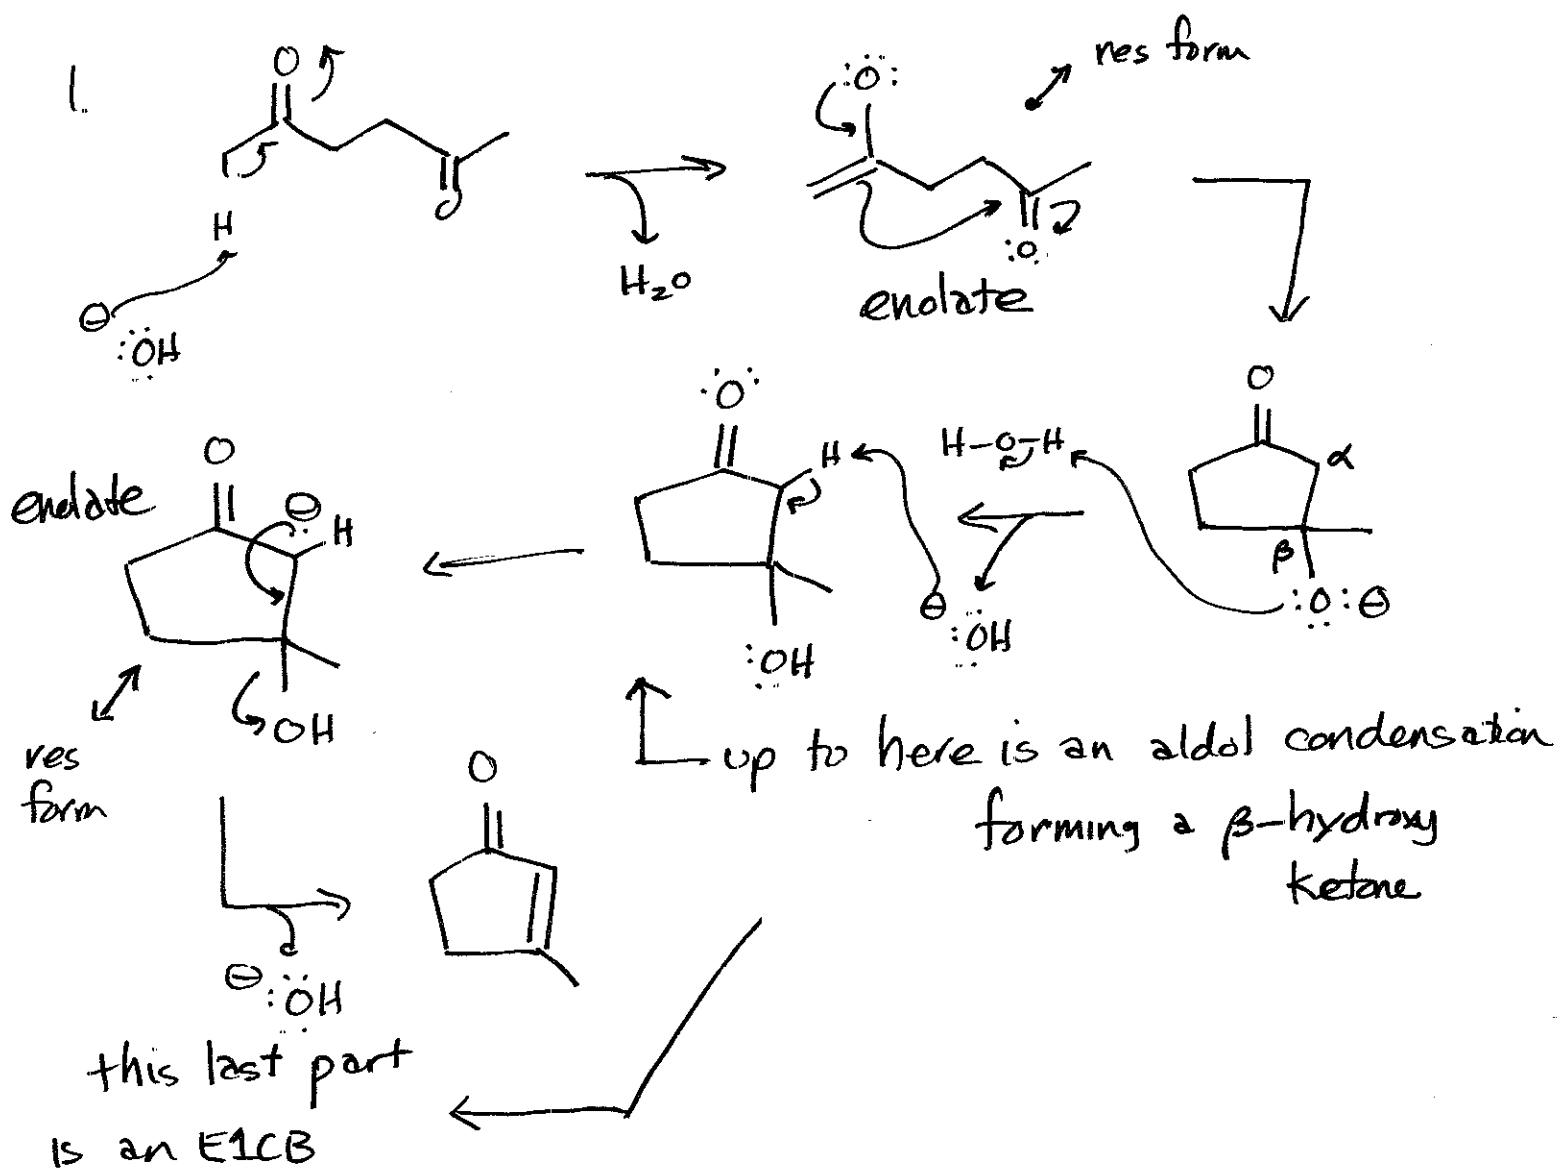 1.
O
res form
:O:
O
H
H2O
:O:
enolate
⊖
:OH
O
O
H-O-H
α
H
β
:O:⊖
O
enolate
⊖
H
⊖
:OH
:OH
OH
res
form
up to here is an aldol condensation
forming a β-hydroxy
ketone
O
⊖
:OH
this last part
is an E1CB